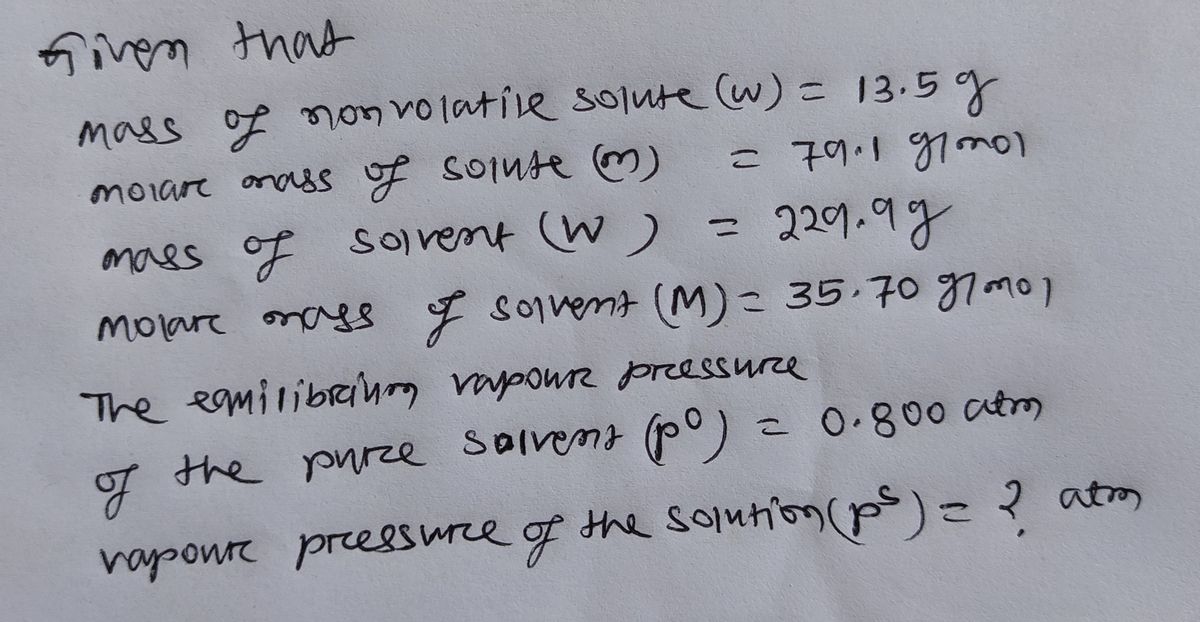 Given that
mass of nonvolatile solute (w) = 13.5 g
molar mass of solute (m) = 79.1 g/mol
mass of solvent (W) = 229.9g
Molar mass of solvent (M) = 35.70 g/mol
The equilibrium vapour pressure
of the pure solvent (p⁰) = 0.800 atm
vapour pressure of the solution (pˢ) = ? atm